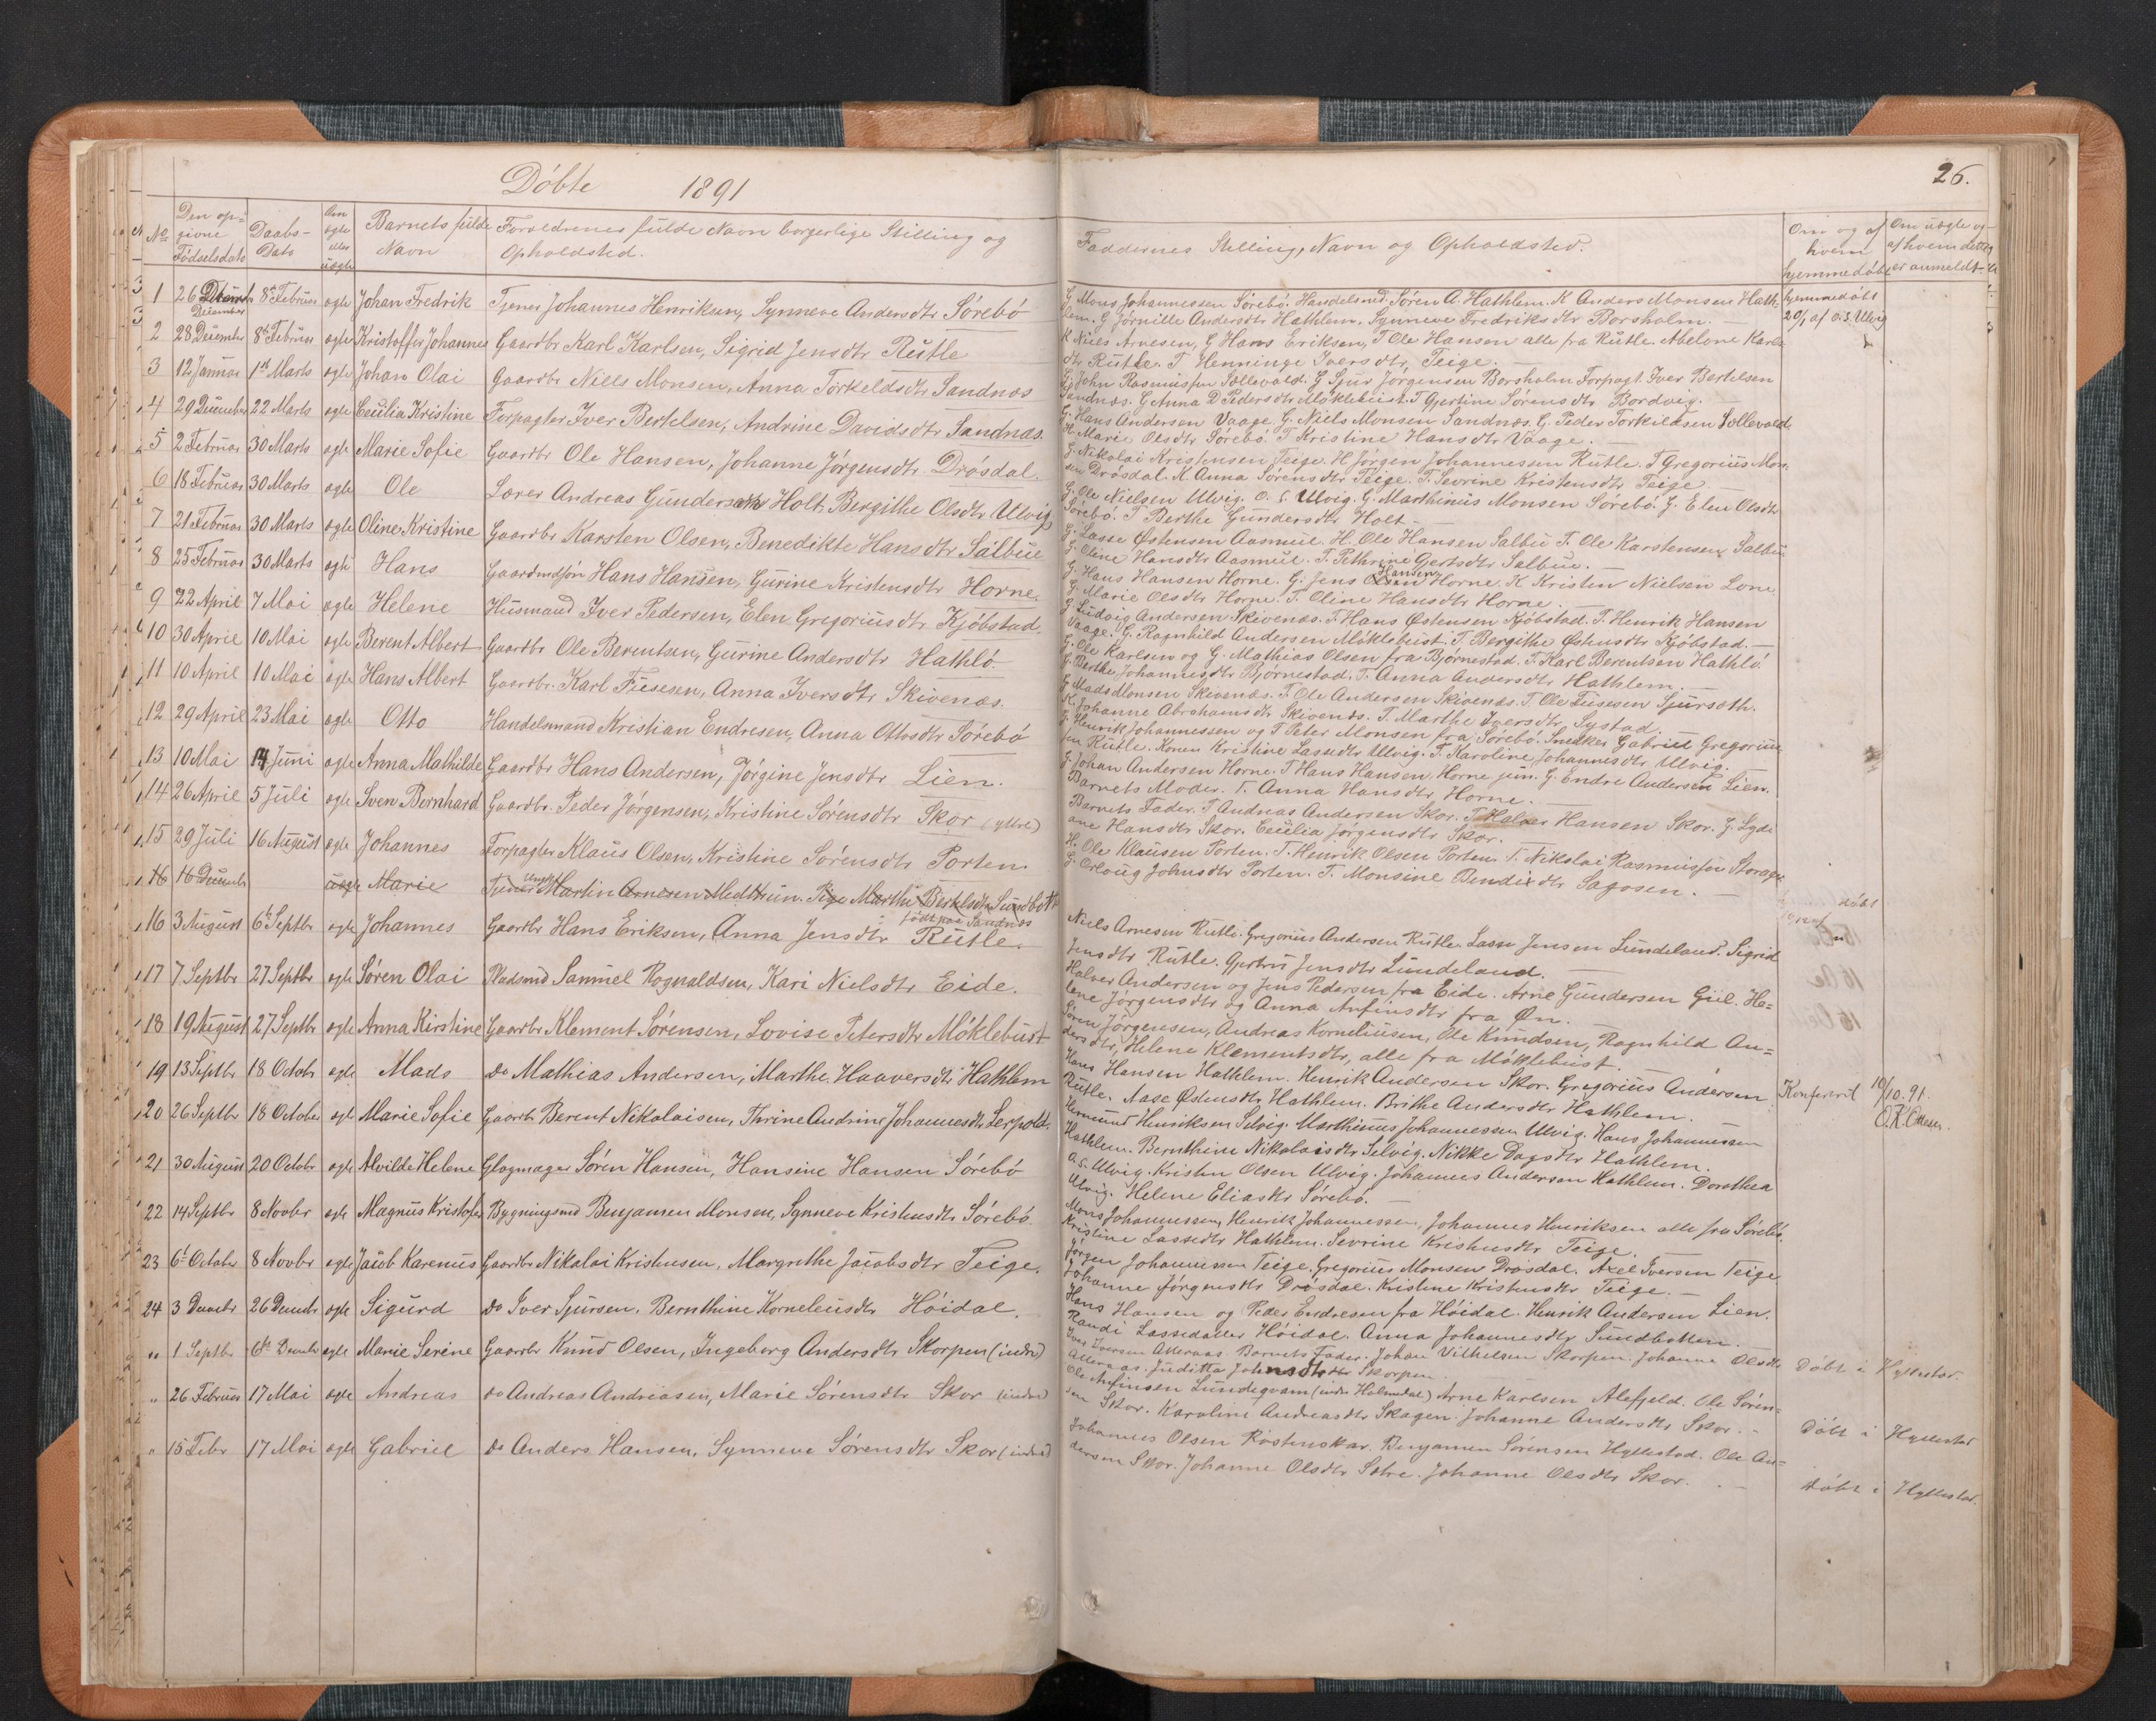 Döbte 1891
No
Den op=
givne
Födselsdato
Daabs-
Dato
Om
ægte
eller
uægte
Barnets fulde
Navn
Forældrenes fulde Navn borgerlige Stilling og
Opholdsted.
1 26 December 8de Februar ægte Johan Fredrik Tjener Johannes Henriksen, Synneve Andersdtr Sörebö
2 28 December 8de Februar ægte Kristoffer Johannes Gaardbr Karl Karlsen, Sigrid Jensdtr Rutle
3 12 Januar 1ste Marts ægte Johan Olai Gaardbr Niels Monsen, Anna Torkeldsdtr Sandnæs
4 29 December 22 Marts ægte Cecilia Kristine Forpagter Iver Bertelsen, Andrine Davidsdtr Sandnæs.
5 2 Februar 30 Marts ægte Marie Sofie Gaardbr Ole Hansen, Johanne Jörgensdtr Drösdal.
6 18 Februar 30 Marts ægte Ole Lærer Andreas Gundersen Holt, Bergithe Olsdtr Ulvig
7 21 Februar 30 Marts ægte Oline Kristine Gaardbr Karsten Olsen, Benedikte Hansdtr Salbue
8 25 Februar 30 Marts ægte Hans Gaardmdsön Hans Hansen, Gurine Kristensdtr Horne.
9 22 April 7 Mai ægte Helene Husmand Iver Pedersen, Elen Gregoriusdtr Kjöbstad.
10 30 April 10 Mai ægte Berent Albert Gaardbr Ole Berentsen, Gurine Andersdtr Hathlö.
11 10 April 10 Mai ægte Hans Albert Gaardbr. Karl Tusesen, Anna Iversdtr Skivenæs.
12 29 April 23 Mai ægte Otto Handelsmand Kristian Endresen, Anna Ottosdtr Sörebö
13 10 Mai 14 Juni ægte Anna Mathilde Gaardbr Hans Andersen, Jörgine Jensdtr Lien.
14 26 April 5 Juli ægte Sven Bernhard Gaardbr. Peder Jörgensen, Kristine Sörensdtr Skor (yttre)
15 29 Juli 16 August ægte Johannes Forpagter Klaus Olsen, Kristine Sörensdtr Porten.
16 16 Decembr uægte Marie Tjener Ungk. Martin Arnesen Medthun. Pige Marthe Bertelsdtr Sundbotten
födt paa Sandnæs
16 3 August 6te Septbr ægte Johannes Gaardbr Hans Eriksen, Anna Jensdtr Rutle.
17 7 Septbr 27 Septbr ægte Sören Olai Pladsmd Samuel Rognaldsen, Kari Nielsdtr Eide.
18 19 August 27 Septbr ægte Anna Kirstine Gaardbr Klement Sörensen, Lovise Petersdtr Möklebust
19 13 Septbr 18 Octobr ægte Mads Do Mathias Andersen, Marthe Haaversdtr Hathlem
20 26 Septbr 18 October ægte Marie Sofie Gaardbr Berent Nikolaisen, Thrine Andrine Johannesdtr Lerpold.
21 30 August 20 Octobr ægte Alvilde Helene Glasmager Sören Hansen, Hansine Hansen Sörebö
22 14 Septbr 8 Novbr ægte Magnus Kristofer Bygningsmd Benjamen Monsen, Synneve Kristensdtr Sörebö
23 6te October 8 Novbr ægte Jacob Karenus Gaardbr Nikolai Kristensen, Margrethe Jacobsdtr Teige.
24 3 Decmbr 26 Decmbr ægte Sigurd Do Iver Sjursen, Bernthine Korneleusdtr Höidal.
" 1 Septbr 6te Decmbr ægte Marie Serine Gaardbr Knud Olsen, Ingeborg Andersdtr Skorpen (indre)
" 26 Februar 17 Mai ægte Andreas do Andreas Andreasen, Marie Sörensdtr Skor (indre)
" 15 Febr 17 Mai ægte Gabriel do Anders Hansen, Synneve Sörensdtr Skor (indre)
26.
Faddernes Stilling, Navn og Opholdsted.
Om og af
hvem
hjemmedöbt
Om uægte og
af hvem dette
er anmeldt
G Mons Johannessen Sörebö. Handelsmd Sören A. Hathlem. K Anders Monsen Hath-
lem. G Jörnille Andersdtr Hathlem. Synneve Fredriksdtr Borsholm.
hjemmedöbt
20/1 af O. S. Ulvig
K Niels Arnesen, G Hans Eriksen, T Ole Hansen alle fra Rutle. Abelone Karls
dtr Rutle. T Henninge Iversdtr, Teige.
G John Rasmussen Sællevold. G Sjur Jörgensen Borsholm Forpagt. Iver Bertelsen
Sandnæs. G Anna D Pedersdtr Möklebust. T Gjertine Sörensdtr Bordvig.
G. Hans Andersen Vaage. G. Niels Monsen Sandnæs. G. Peder Torkildsen Sællevold
H. Marie Olsdtr Sörebö. T Kristine Hansdtr Vaage.
G. Nikolai Kristensen Teige. H Jörgen Johannessen Rutle. T Gregorius Mon-
sen Drösdal. K. Anna Sörensdtr Teige. T. Sevrine Kristensdtr Teige
G. Ole Nielsen Ulvig. O. S. Ulvig. G. Marthinus Monsen Sörebö. G. Elen Olsdtr
Sörebö. T Berthe Gundersdtr Holt.
G. Lasse Østensen Aasmul. H. Ole Hansen Salbu T. Ole Karstensen Salbu
G. Oline Hansdtr Aasmul. T. Pethrine Gertsdtr Salbue.
G. Hans Hansen Horne. G. Jens Hansen Horne. K Kristen Nielsen Lone
G. Marie Olsdtr Horne. T. Oline Hansdtr Horne.
G Ludvig Andersen Skivenæs. T. Hans Østensen Kjöbstad. T. Henrik Hansen
Vaage. G. Ragnhild Andersen Möklebust. T. Bergithe Østensdtr Kjöbstad.
G. Ole Karlsen og G. Mathias Olsen fra Björnestad. T. Karl Berentsen Hathlö
G. Berthe Johannesdtr Björnestad. T. Anna Andersdtr Hathlem.
G Mads Monsen Skivenæs. T. Ole Andersen Skivenæs. T. Ole Tusesen Sjurseth.
K. Johanne Abrahamsdtr Skivenæs. T. Marthe Iversdtr Systad.
G. Henrik Johannessen og T Peter Monsen fra Sörebö. Snedker Gabriel Gregorius
sen Rutle. Konen Kristine Lassedtr Ulvig. T. Karoline Johannesdtr Ulvig.
G. Johan Andersen Horne. T Hans Hansen Horne jun. G. Endre Andersen Lien.
Barnets Moder. T. Anna Hansdtr Horne.
Barnets Fader. T Andreas Andersen Skor. T. Halver Hansen Skor. G. Lydi
ane Hansdtr Skor. Cecilia Jörgensdtr Skor.
H. Ole Klausen Porten. T. Henrik Olsen Porten. T. Nikolai Rasmussen Storager
G. Orloug Johnsdtr Porten. T. Monsine Bendixdtr Sagosen.
döbt
Niels Arnesen Rutle. Gregorius Andersen Rutle. Lasse Jensen Lundeland. Sigrid
Jensdtr Rutle. Gjertrus Jensdtr Lundeland.
Halver Andersen og Jens Pedersen fra Eide. Arne Gundersen Gul. He=
lene Jörgensdtr og Anna Anfinsdtr fra Øn.
Sören Jörgensen, Andreas Korneliusen, Ole Knudsen, Ragnhild An=
dersdtr, Helene Klementsdtr, alle fra Möklebust.
Hans Hansen Hathlem. Henrik Andersen Skor. Gregorius Andersen
Rutle. Aase Østensdtr Hathlem. Brithe Andersdtr Hathlem.
Konfererit 10/10.91.
Hermund Henriksen Selvig. Marthinus Johannessen Ulvig. Hans Johannessen
Hathlem. Bernthine Nikolaisdtr Selvig. Nikke Dagsdtr Hathlem.
O. S. Ulvig. Kristen Olsen Ulvig. Johannes Andersen Hathlem. Dorothea
Ulvig. Helene Eliasdtr Sörebö.
Mons Johannessen, Henrik Johannessen, Johannes Henriksen alle fra Sörebö
Kristine Lassedtr Hathlem. Sevrine Kristensdtr Teige.
Jörgen Johannessen Teige. Gregorius Monsen Drösdal. Axel Iversen Teige
Johanne Jörgensdtr Drösdal. Kristine Kristensdtr Teige.
Hans Hansen og Peder Endresen fra Höidal. Henrik Andersen Lien.
Randi Lassedatter Höidal. Anna Johannesdtr Sundbotten.
Iver Iversen Atteraas. Barnets Fader. Johan Vilhelsen Skorpen. Johanne Olsdtr
Atteraas. Juditta Johnsdtr Skorpen.
Döbt i Hyllestad.
Ole Anfinsen Lundeqvam (indre Holmedal) Arne Karlsen Alefjeld. Ole Sören=
sen Skor. Karoline Andreasdtr Skagen. Johanne Andersdtr Skor.
Döbt i Hyllestad
Johannes Olsen Röstenskar. Benjamen Sörensen Hyllestad. Ole An=
dersen Skor. Johanne Olsdtr Sætre. Johanne Olsdtr Skor.
Döbt i Hyllestad.